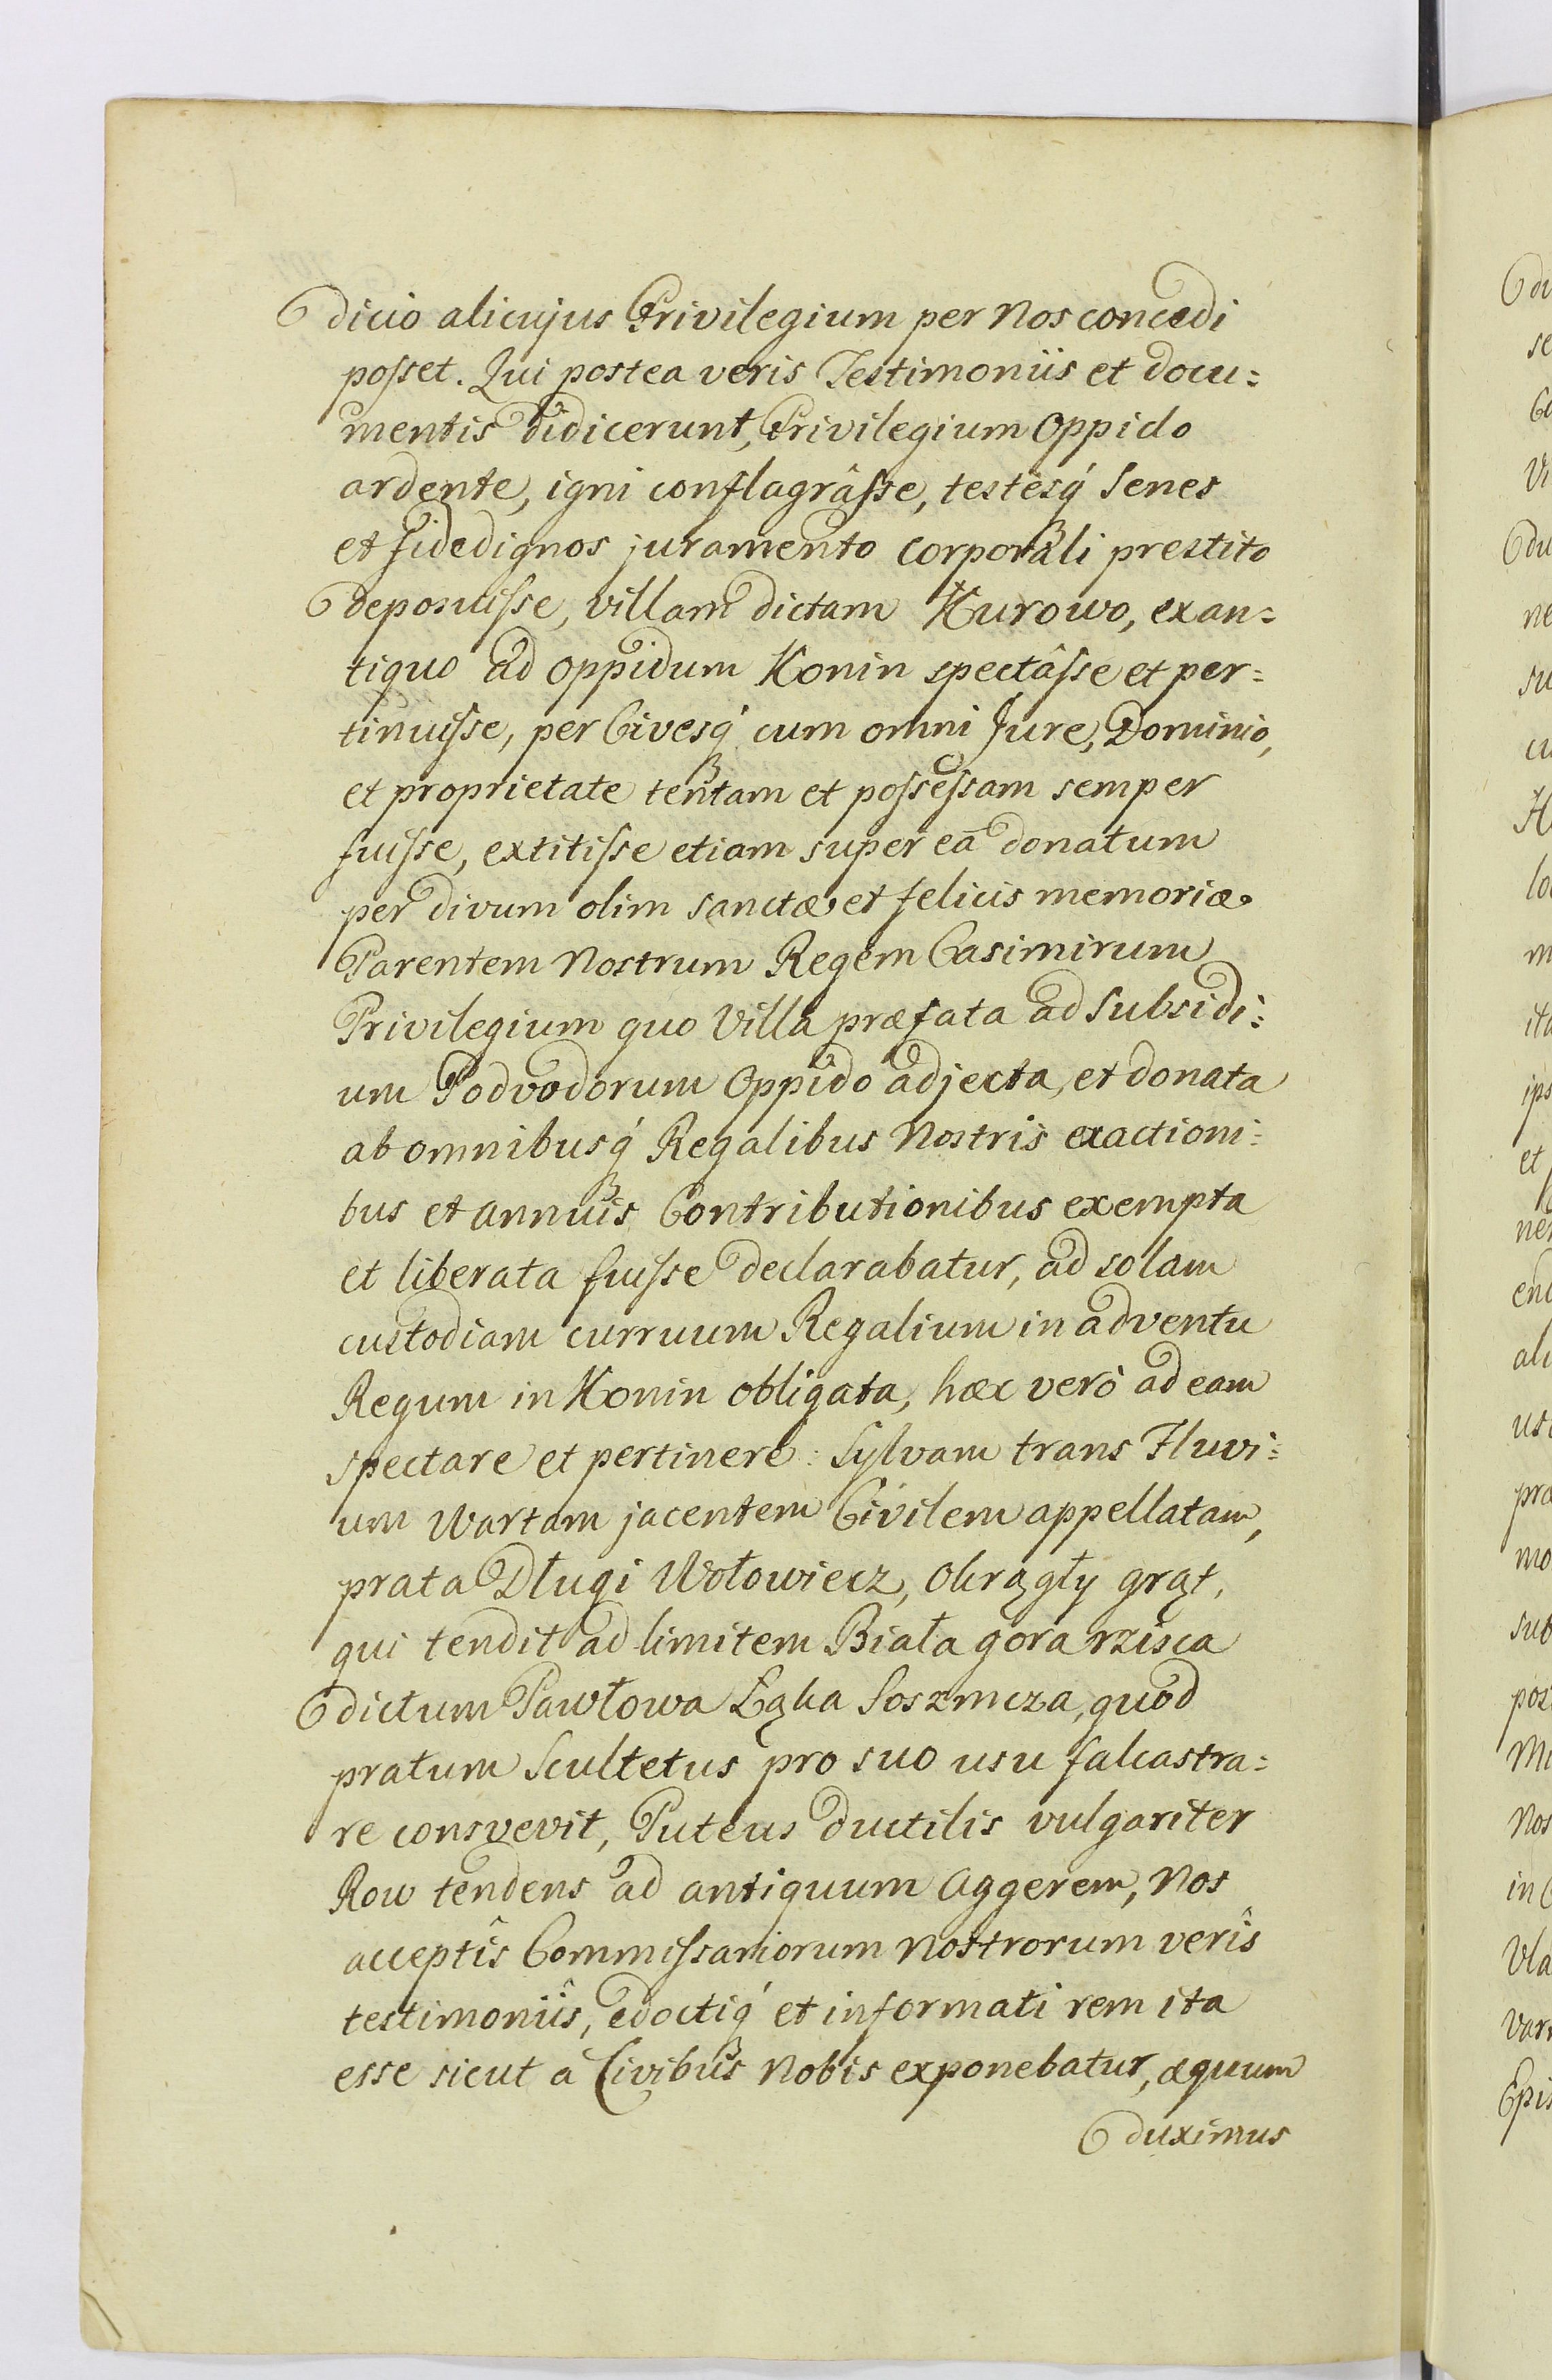 dicio alicujus Privilegium per Nos concedi
posset. Qui postea veris Testimoniis et docu=
mentis didicerunt, Privilegium Oppido
ardente, igni conflagrâsse, testesq́ Senes
et fidedignos juramento corporali prestito
deposuisse, villam dictam Kurowo, exan=
tiquo ad oppidum Konin spectâsse et per=
tinuisse, per Civesq́ cum omni Jure, Dominio,
et proprietate tentam et possessam semper
fuisse, extitisse etiam super eâ donatum
per divum olim sanctæ et felicis memoriæ
Parentem Nostrum Regem Casimirum
Privilegium quo Villa præfata ad Subsidi=
um Podvodorum Oppido adjecta, et donata
ab omnibusq́ Regalibus Nostris exactioni=
bus et annuis Contributionibus exempta
et liberata fuisse declarabatur, ad solam
custodiam curruum Regalium in adventu
Regum in Konin obligata, hæc verò ad eam
spectare et pertinere: Sylvam trans Fluvi=
um Wartam jacentem Civilem appellatam,
prata Długi Wołowiecz, Okrągły grąt,
qui tendit ad limitem Biała gora rzisca
dictum Pawłowa Łąka Soszmcza, quod
pratum Scultetus pro suo usu falcastra=
re consvevit, Puteus ductilis vulgariter
Row tendens ad antiquum Aggerem, Nos
acceptîs Commissariorum Nostrorum verîs
testimoniîs, edoctiq́ et informati rem ita
esse sicut à Civibus Nobis exponebatur, æquum
duximus